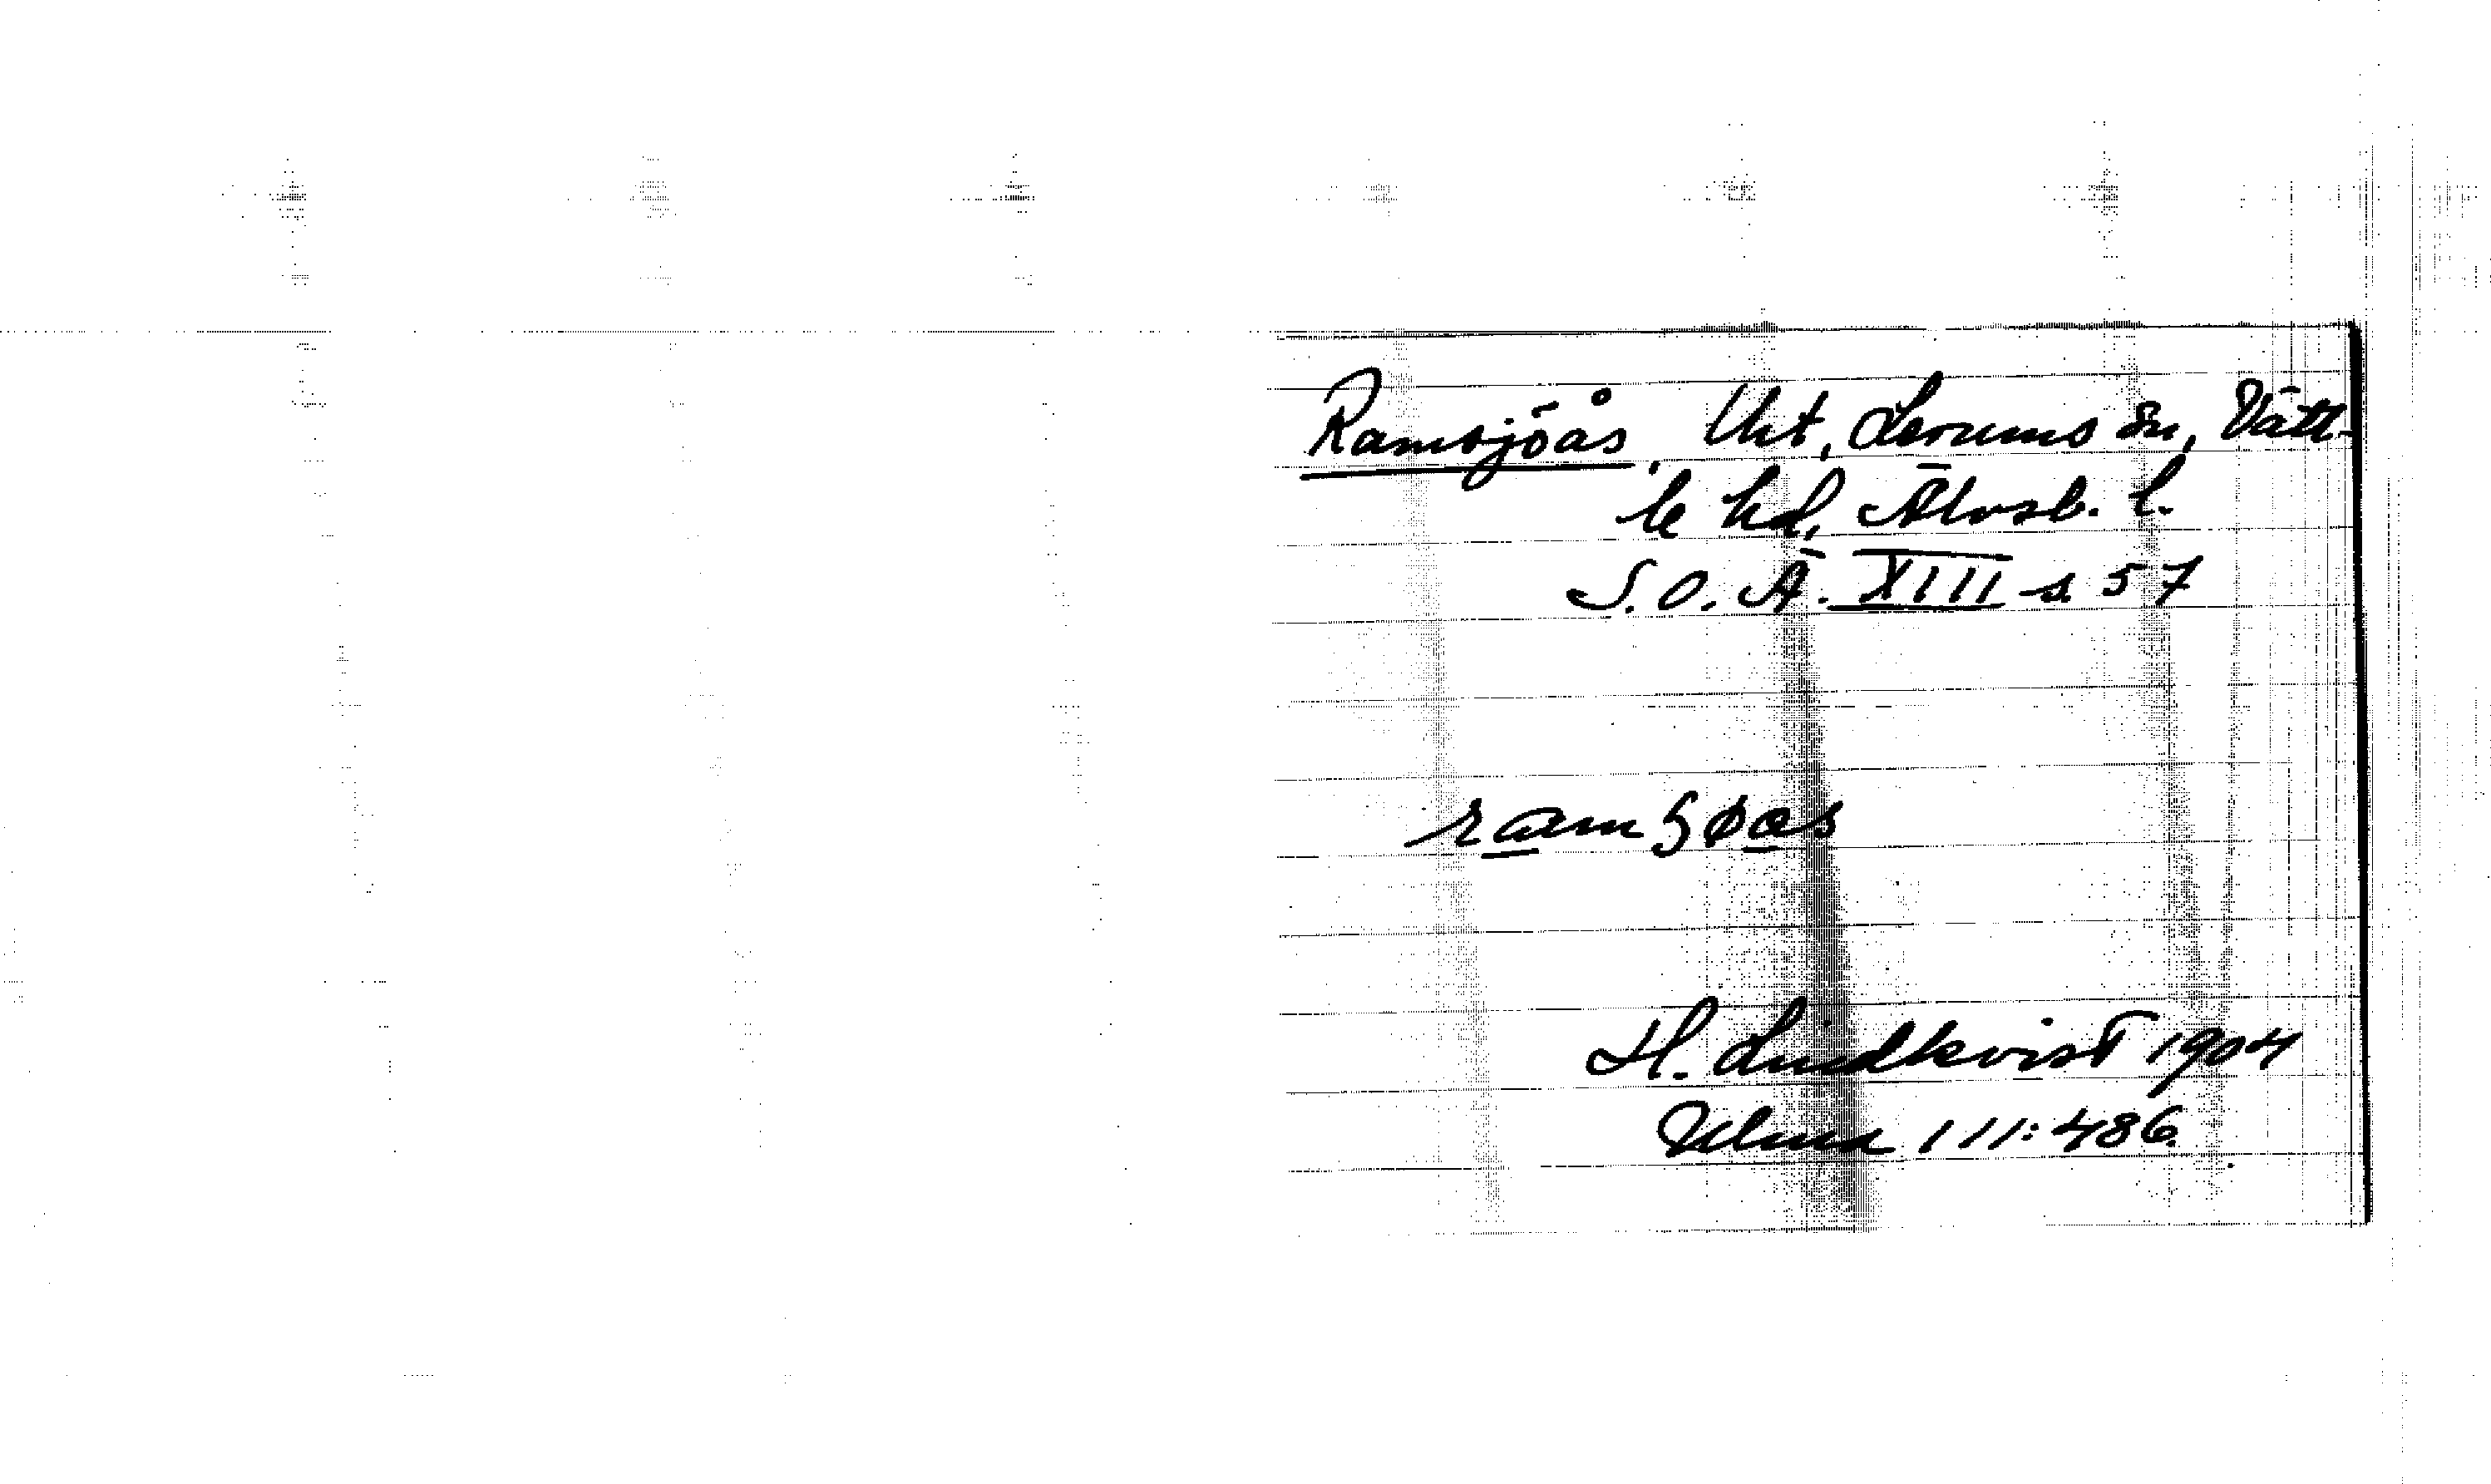 Ramsjöås, Uht, Lerums sn, Vätt-
le hd, Älvsb. l.
S.O.Ä. XIII s. 57
H. Lindkvist 1904
111:486.